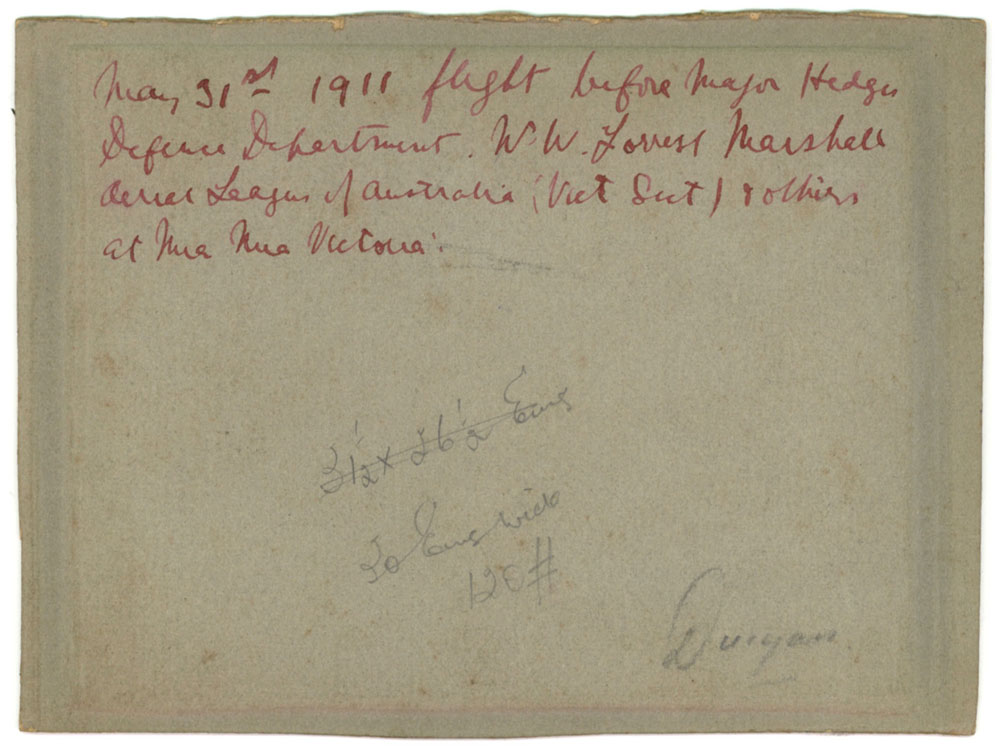 May 31st 1911 flight before Major Hedges
Defence Department. W. W. Forrest Marshall
Aerial League of Australia (Vict Sect) & others
at Mia Mia Victoria.
3½ x
30 Ems wide
120#
Duigan